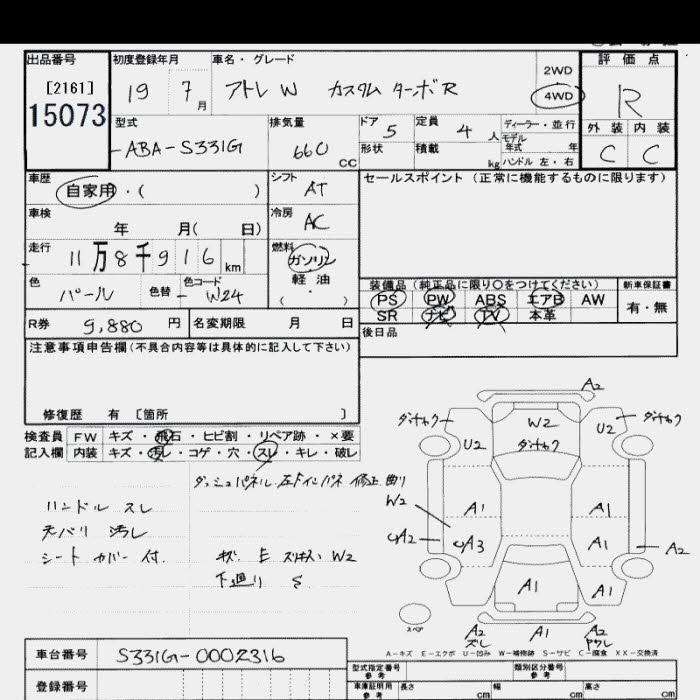 出品番号 初度登録年月 車名・グレード 評価点
[2161]
15073
19 7月 アトレW カスタムターボR 2WD 4WD R
型式 排気量 ドア 定員 ディーラー・並行
ABA-S331G 660 CC 5 4人 モデル年式 年
形状 積載 kg ハンドル 左・右
外装 内装
C C
車歴 自家用・( ) シフト AT セールスポイント (正常に機能するものに限ります)
車検 年 月( 日) 冷房 AC
走行 11万8千916 km 燃料 ガソリン
軽油
( )
色 パール 色替 - 色コード W24
装備品 (純正品に限り○をつけてください) 新車保証書
PS PW ABS エアB AW 有・無
SR ナビ TV 本革
R券 9,880 円 名変期限 月 日 後日品
注意事項申告欄(不具合内容等は具体的に記入して下さい)
修復歴 有 [箇所 ]
検査員 FW キズ・飛石・ヒビ割・リペア跡・×要
記入欄 内装 キズ・汚レ・コゲ・穴・スレ・キレ・破レ
ハンドル スレ
天バリ 汚レ
シート カバー 付
修正 曲り
キズ E W2
下廻り S
A2
W2
U2
U2
W2
A1
A1
A2
A3
A1
A2
A1
A1
A2
ズレ
A1
A2
スペア
A-キズ E-エクボ U-凹み W-補修跡 S-サビ C-腐食 XX-交換済
車台番号 S331G-0002316
登録番号
型式指定番号 参考 類別区分番号 参考
車庫証明用 参考 長さ cm 幅 cm 高さ cm